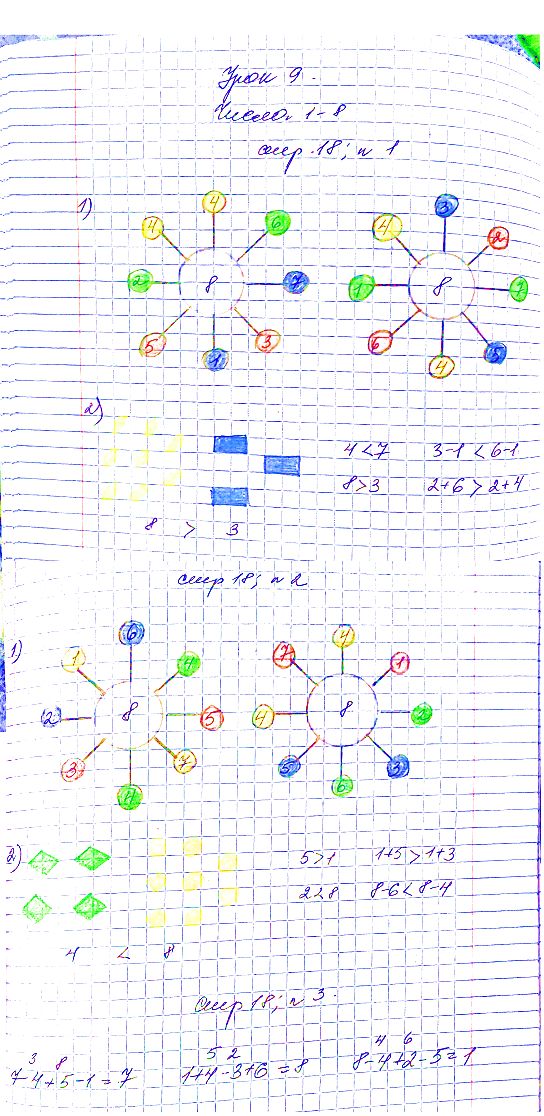 Урок 9.
Числа 1-8
стр. 18; № 1
1)
4 6 7 3 1 5 2 4
8
3 2 1 5 4 6 7 4
8
2)
4<7 3-1 <6-1
8>3 2+6 > 2+4
8 > 3
стр 18; № 2
1)
6 4 5 7 4 3 2 1
8
4 1 2 3 6 5 4 7
8
2)
5>1 1+5>1+3
2<8 8-6<8-4
4 < 8
стр 18; № 3.
3 8
7-4+5-1=7
5 2
1+4-3+6=8
4 6
8-4+2-5=1